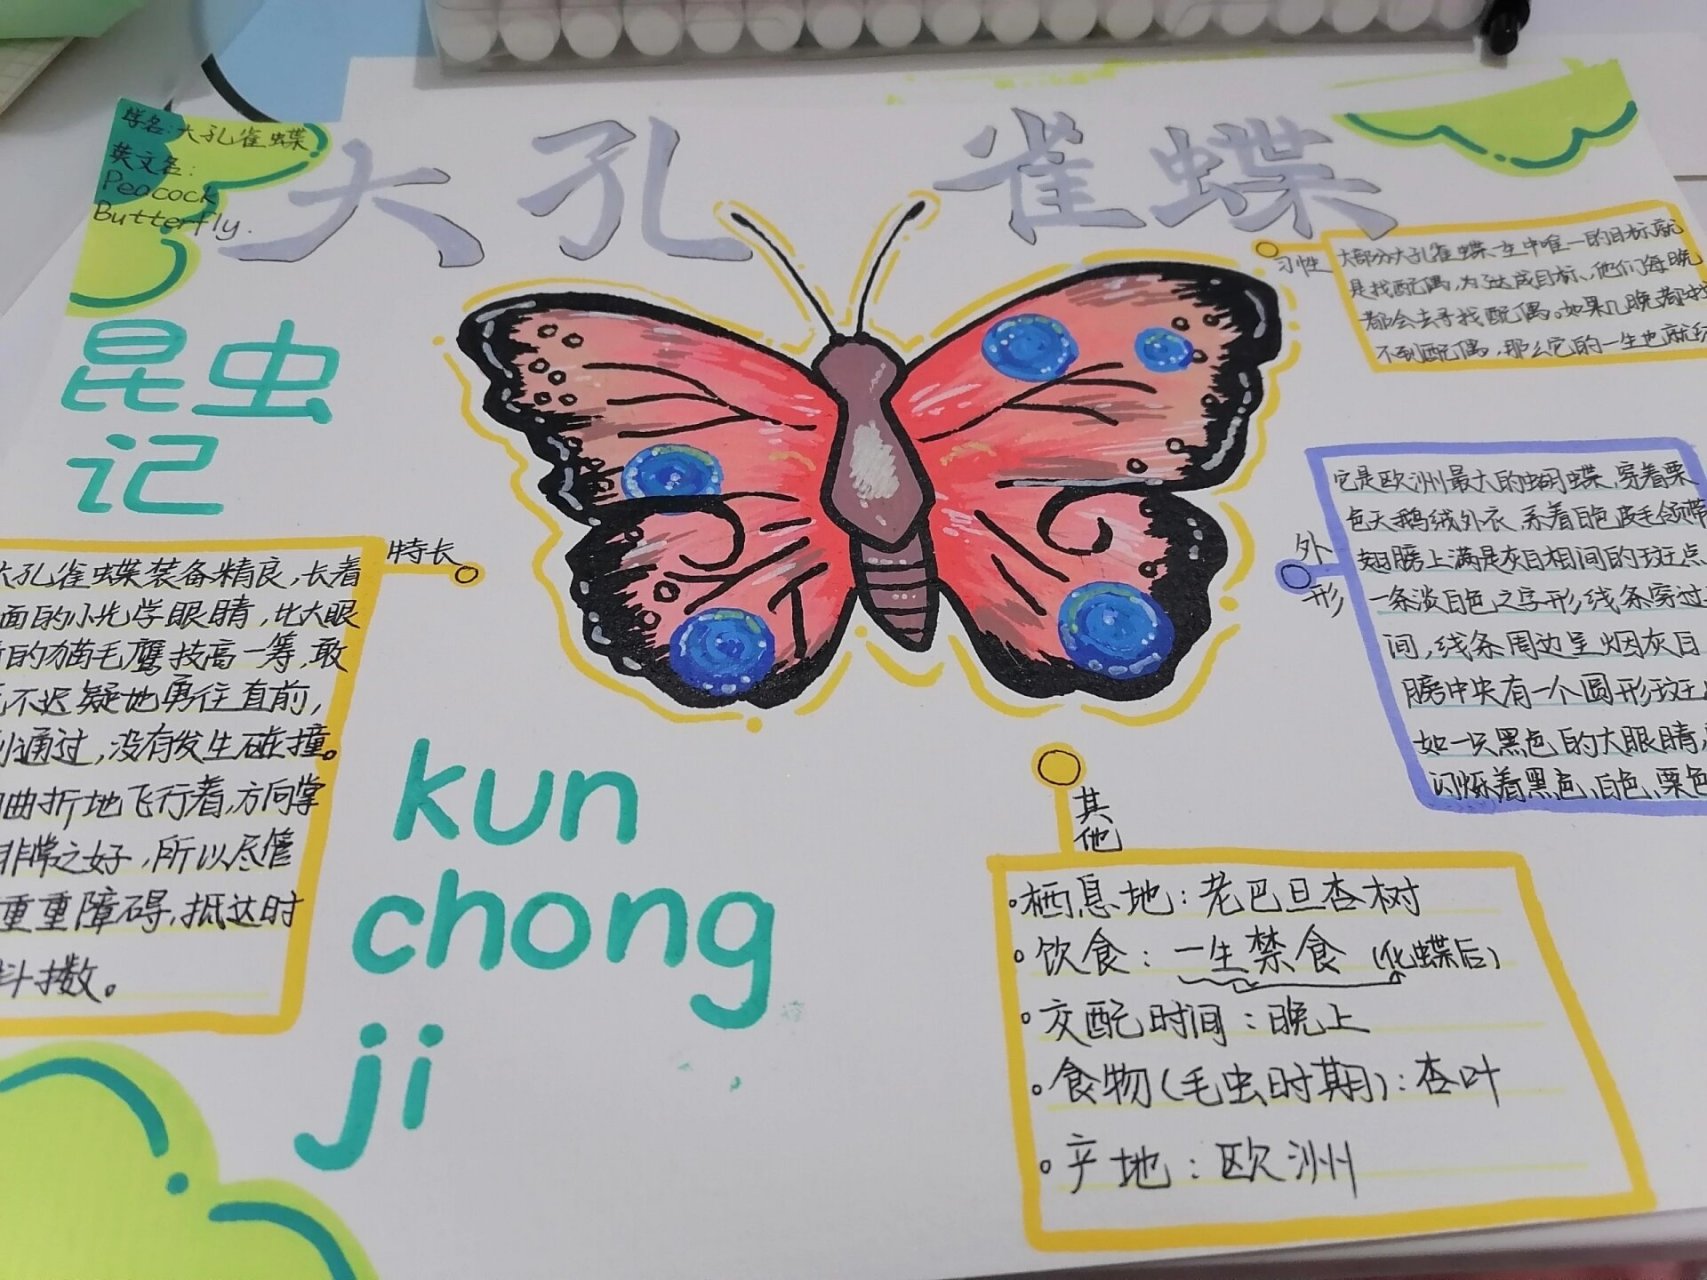 学名:大孔雀蝶
英文名:
Peacock
Butterfly.
大孔雀蝶
昆虫
记
习性
大部分大孔雀蝶一生中唯一的目标就
是找配偶,为了达成目标,他们每晚
都会去寻找配偶。如果几晚都
不到配偶,那么它的一生也就
特长
大孔雀蝶装备精良,长着
面的小光学眼睛,比大眼
的猫毛鹰技高一筹,敢
不迟疑地勇往直前,
通过,没有发生碰撞。
曲折地飞行着,方向掌
非常之好,所以尽管
重重障碍,抵达时
抖擞。
外形
它是欧洲最大的蝴蝶,穿着栗
色天鹅绒外衣,系着白色皮毛领带
翅膀上满是灰白相间的斑点
一条淡白色之字形线条穿过
间,线条周边呈烟灰白
膀中央有一个圆形斑
如一只黑色的大眼睛,
闪烁着黑色、白色、栗色
kun
chong
ji
其他
·栖息地:老巴旦杏树
·饮食:一生禁食(化蝶后)
·交配时间:晚上
·食物(毛虫时期):杏叶
·产地:欧洲